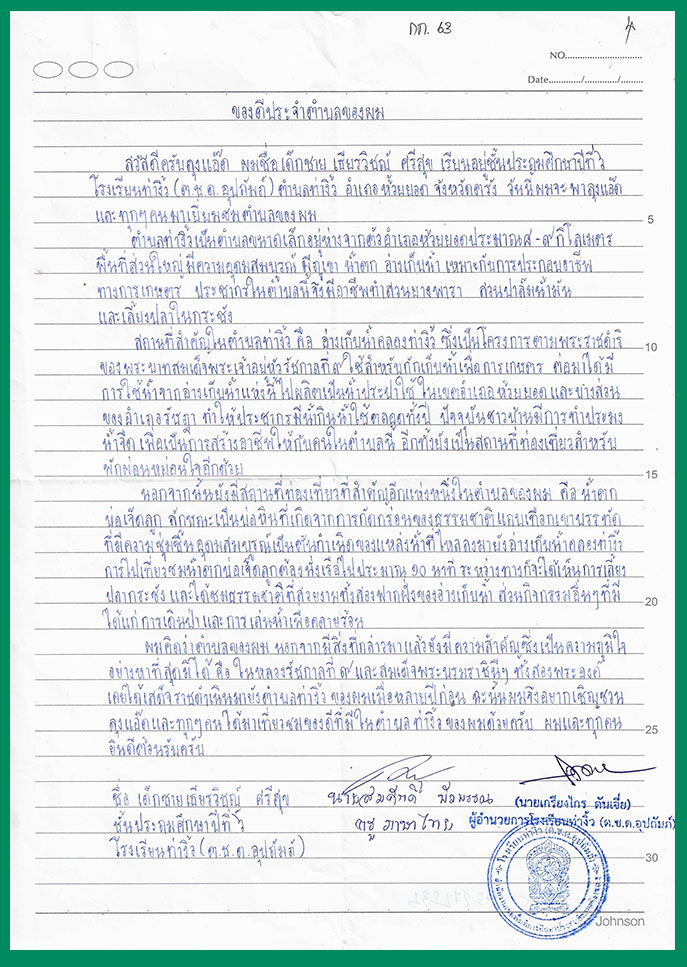 กก. 63
NO.
Date
ของดีประจำตำบลของผม
สวัสดีครับลุงแอ๊ด ผมชื่อเด็กชาย เธียรวิชญ์ ศรีสุข เรียนอยู่ชั้นประถมศึกษาปีที่ ๖
โรงเรียนท่างิ้ว (ต.ช.ด.อุปถัมภ์) ตำบลท่างิ้ว อำเภอห้วยยอด จังหวัดตรัง วันนี้ผมจะพาลุงแอ๊ด
และทุกๆคนมาเยี่ยมชมตำบลของผม
5
ตำบลท่างิ้วเป็นตำบลขนาดเล็กอยู่ห่างจากตัวอำเภอห้วยยอดประมาณ๘-๙ กิโลเมตร
พื้นที่ส่วนใหญ่มีความอุดมสมบูรณ์ มีภูเขา น้ำตก อ่างเก็บน้ำ เหมาะกับการประกอบอาชีพ
ทางการเกษตร ประชากรในตำบลนี้จึงมีอาชีพทำสวนยางพารา สวนปาล์มน้ำมัน
และเลี้ยงปลาในกระชัง
สถานที่สำคัญในตำบลท่างิ้ว คือ อ่างเก็บน้ำคลองท่างิ้ว ซึ่งเป็นโครงการตามพระราชดำริ
10
ของพระบาทสมเด็จพระเจ้าอยู่หัวรัชกาลที่๙ ใช้สำหรับกักเก็บน้ำเพื่อการเกษตร ต่อมาได้มี
การใช้น้ำจากอ่างเก็บน้ำแห่งนี้ไปผลิตเป็นน้ำประปาใช้ ในเขตอำเภอห้วยยอด และบางส่วน
ของอำเภอรัษฎา ทำให้ประชากรมีน้ำกินน้ำใช้ตลอดทั้งปี ปัจจุบันชาวบ้านมีการทำประมง
น้ำจืด เพื่อเป็นการสร้างอาชีพให้กับคนในตำบลนี้ อีกทั้งยังเป็นสถานที่ท่องเที่ยวสำหรับ
พักผ่อนหย่อนใจอีกด้วย
15
นอกจากนั้นยังมีสถานที่ท่องเที่ยวที่สำคัญอีกแห่งหนึ่งในตำบลของผม คือ น้ำตก
บ่อเจ็ดลูก ลักษณะเป็นบ่อหินที่เกิดจากการกัดกร่อนของธรรมชาติ แถบเทือกเขาบรรทัด
ที่มีความชุ่มชื้น อุดมสมบูรณ์เป็นต้นกำเนิดของแหล่งน้ำที่ไหลลงมายังอ่างเก็บน้ำคลองท่างิ้ว
การไปเที่ยวชมน้ำตกบ่อเจ็ดลูกต้องนั่งเรือไปประมาณ ๒๐ นาที ระหว่างทางก็จะได้เห็นการเลี้ยง
ปลากระชัง และได้ชมธรรมชาติที่สวยงามทั้งสองฝากฝั่งของอ่างเก็บน้ำ ส่วนกิจกรรมอื่นๆที่มี
20
ได้แก่ การเดินป่า และ การเล่นน้ำเพื่อคลายร้อน
ผมคิดว่าตำบลของผม นอกจากมีสิ่งที่กล่าวมาแล้วยังมีความสำคัญซึ่งเป็นความภูมิใจ
อย่างหาที่สุดมิได้ คือ ในหลวงรัชกาลที่ ๙ และสมเด็จพระบรมราชินีฯ ทั้งสองพระองค์
เคยได้เสด็จราชดำเนินมายังตำบลท่างิ้ว ของผมเมื่อหลายปีก่อน ฉะนั้นผมจึงอยากเชิญชวน
ลุงแอ๊ดและทุกๆคนได้มาเที่ยวชมของดีที่มีในตำบลท่างิ้ว ของผมด้วยครับ ผมและทุกคน
25
ยินดีต้อนรับครับ
ชื่อ เด็กชายเธียรวิชญ์ ศรีสุข
ชั้นประถมศึกษาปีที่ ๖
โรงเรียนท่างิ้ว (ต.ช.ด.อุปถัมภ์)
ครู ภาษาไทย
(นายเกรียงไกร ตันเจี่ย)
ผู้อำนวยการโรงเรียนท่างิ้ว (ต.ช.ด.อุปถัมภ์)
30
Johnson